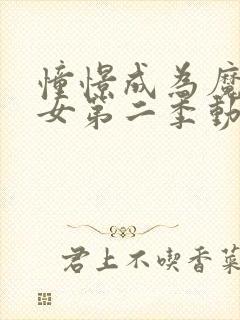 憧憬成为魔
女第二季動
君上不喫香菜